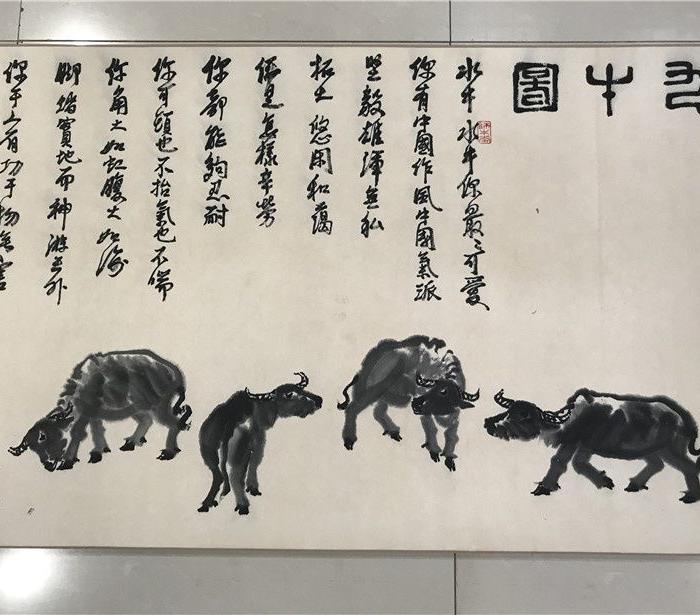 牛圖
水牛水牛你最々可愛
你有中國作風中國氣派
堅毅雄渾無私
拓大悠閑和藹
任是怎樣辛勞
你都能夠忍耐
你可頭也不抬氣也不喘
你角大如虹腹大如海
脚踏實地而神游天外
你于人有功于物無害